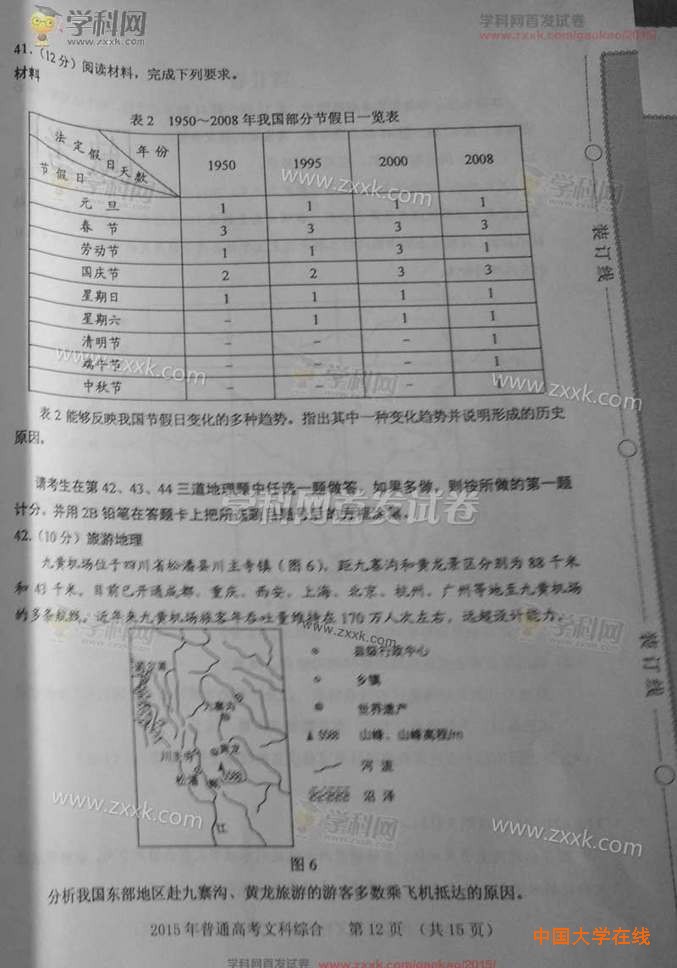 学科网
www.zxxk.com
学科网首发试卷
www.zxxk.com/gaokao/2015/
41.(12分)阅读材料，完成下列要求。
材料
表2 1950～2008年我国部分节假日一览表
法定假日天数 年份
节假日
1950 1995 2000 2008
元旦 1 1 1 1
春节 3 3 3 3
劳动节 1 1 3 1
国庆节 2 2 3 3
星期日 1 1 1 1
星期六 - 1 1 1
清明节 - - - 1
端午节 - - - 1
中秋节 - - - 1
学科网
www.zxxk.com
学科网
www.zxxk.com
学科网
www.zxxk.com
装订线
表2能够反映我国节假日变化的多种趋势。指出其中一种变化趋势并说明形成的历史
原因。
请考生在第42、43、44三道地理题中任选一题做答。如果多做，则按所做的第一题
计分。并用2B铅笔在答题卡上把所选
学科网首发试卷
42.(10分)旅游地理
九黄机场位于四川省松潘县川主寺镇(图6)，距九寨沟和黄龙景区分别为88千米
和43千米。目前已开通成都、重庆、西安、上海、北京、杭州、广州等地至九黄机场
的多条航线。近年来九黄机场旅客年吞吐量维持在170万人次左右，远超设计能力。
学科网
www.zxxk.com
县级行政中心
乡镇
世界遗产
5588 山峰、山峰高程/m
河流
沼泽
九寨沟
黄龙
川主寺
5588
松潘
岷
江
装订线
www.zxxk.com
学科网
www.zxxk.com
图6
分析我国东部地区赴九寨沟、黄龙旅游的游客多数乘飞机抵达的原因。
2015年普通高考文科综合 第12页 (共15页)
中国大学在线
学科网首发试卷
www.zxxk.com/gaokao/2015/